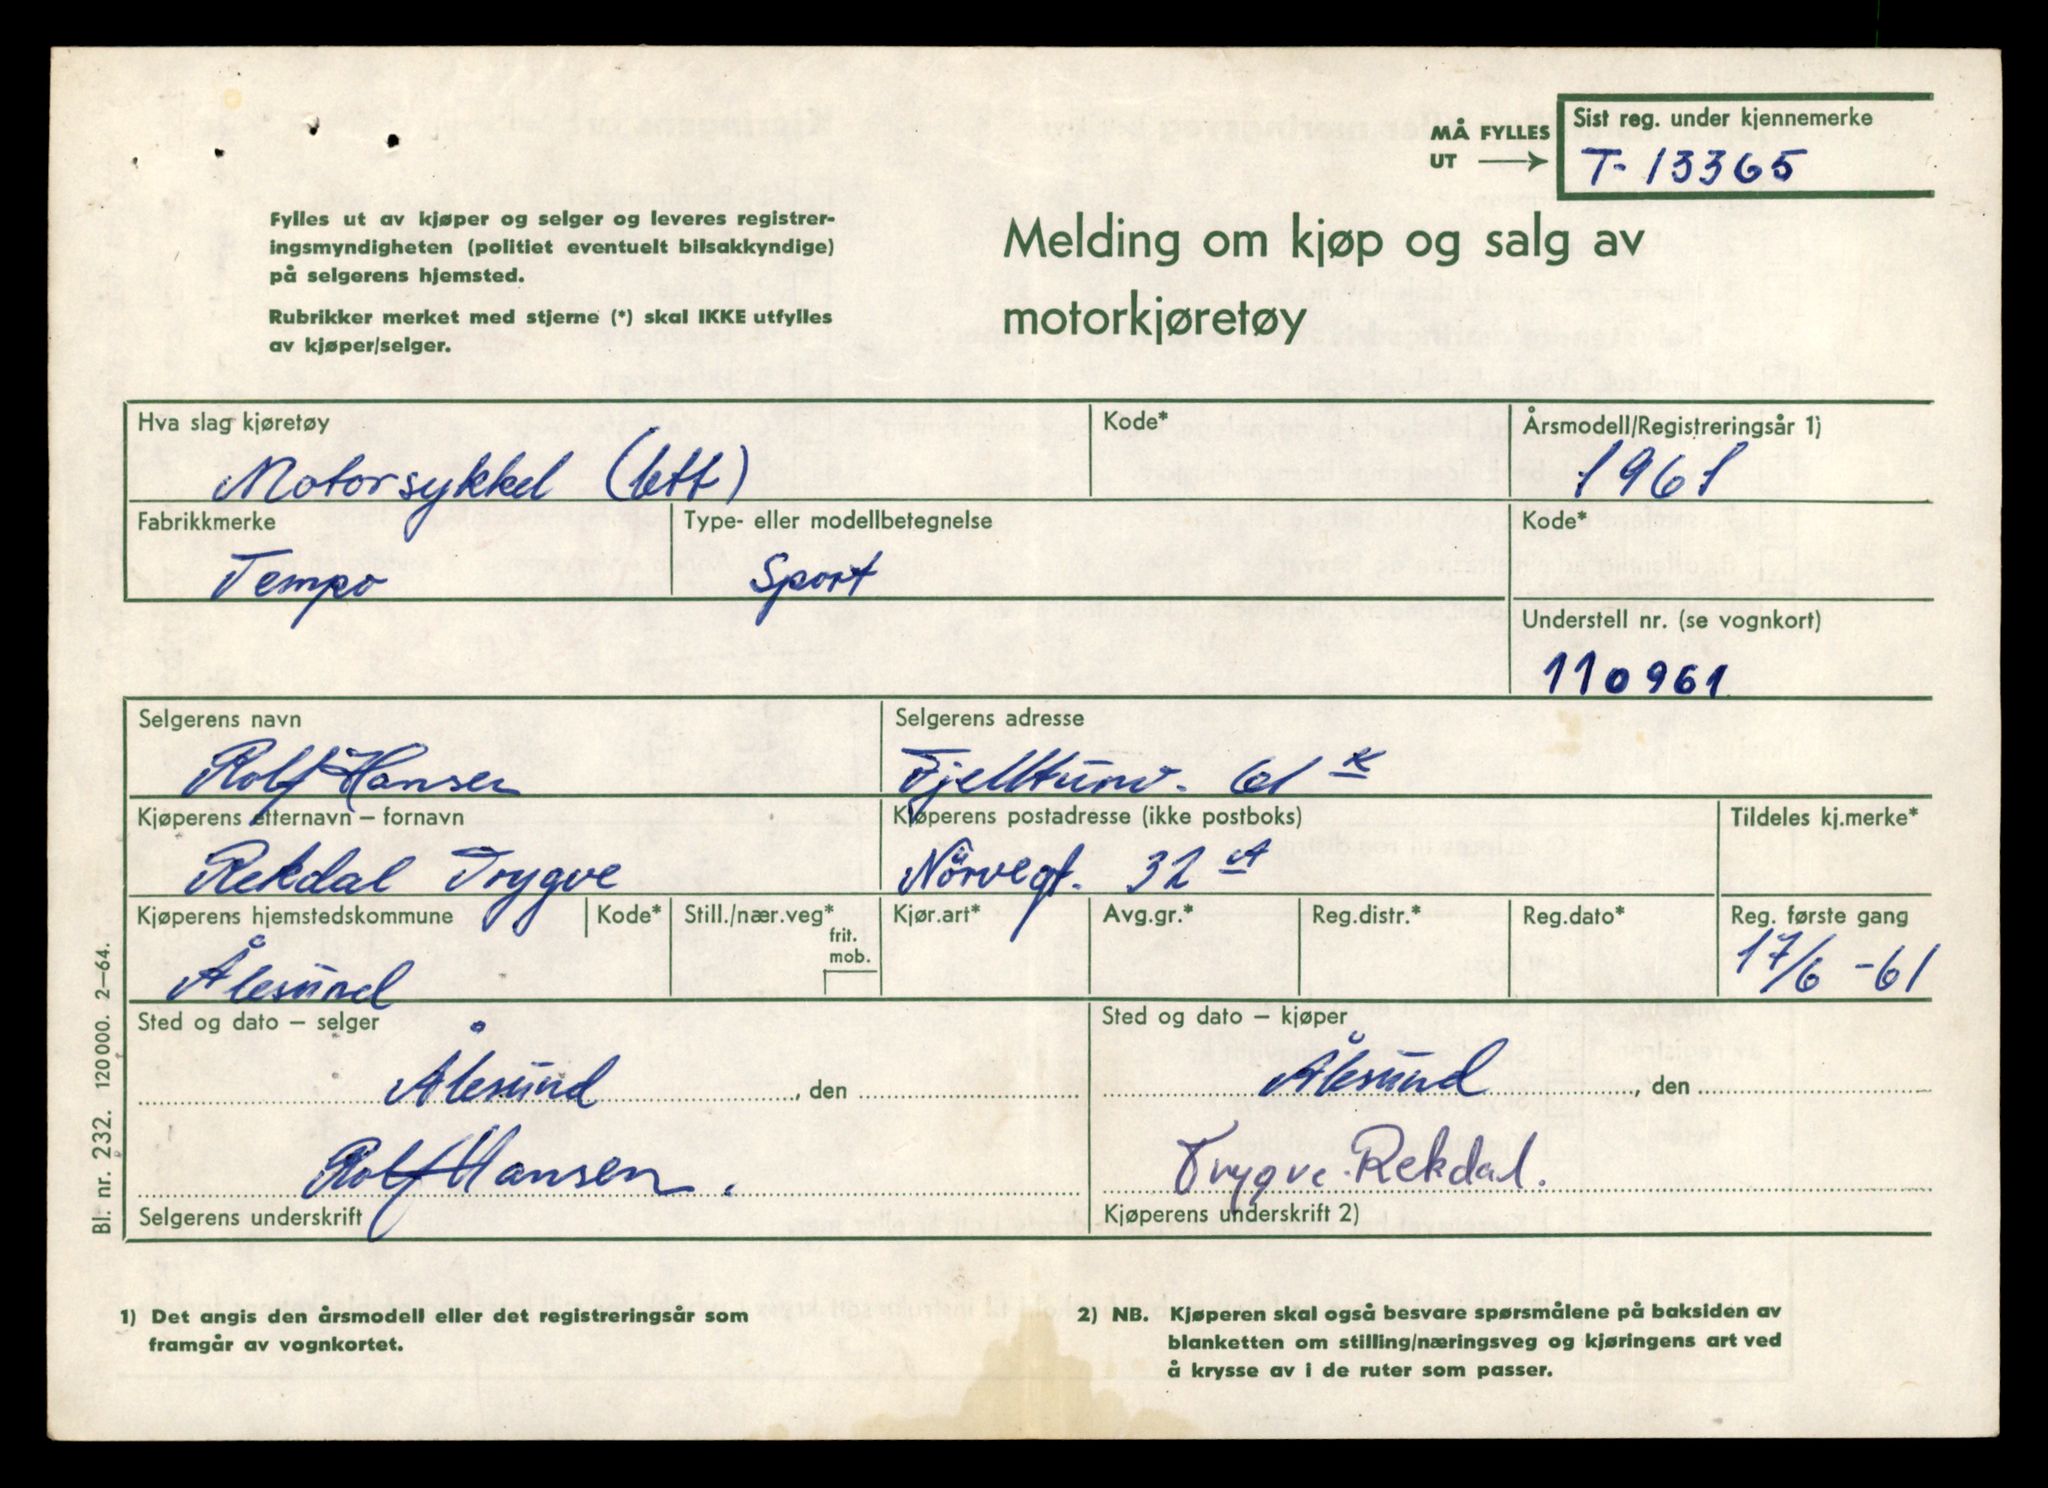 MÅ FYLLES
UT
Sist reg. under kjennemerke
T-13365
Fylles ut av kjøper og selger og leveres registrer-
ingsmyndigheten (politiet eventuelt bilsakkyndige)
på selgerens hjemsted.
Rubrikker merket med stjerne (*) skal IKKE utfylles
av kjøper/selger.
Melding om kjøp og salg av
motorkjøretøy
Hva slag kjøretøy
Motorsykkel (lett)
Kode*
Årsmodell/Registreringsår 1)
1961
Fabrikkmerke
Tempo
Type- eller modellbetegnelse
Sport
Kode*
Understell nr. (se vognkort)
110961
Selgerens navn
Rolf Hansen
Selgerens adresse
Fjelltunv. 61 K
Kjøperens etternavn – fornavn
Rekdal Trygve
Kjøperens postadresse (ikke postboks)
Nørvegt. 32 A
Tildeles kj.merke*
Kjøperens hjemstedskommune
Ålesund
Kode*
Still./nær.veg*
frit.
mob.
Kjør.art*
Avg.gr.*
Reg.distr.*
Reg.dato*
Reg. første gang
17/6 -61
Sted og dato – selger
Ålesund, den
Rolf Hansen.
Selgerens underskrift
Sted og dato – kjøper
Ålesund, den
Trygve Rekdal.
Kjøperens underskrift 2)
Bl. nr. 232. 120 000. 2–64.
1) Det angis den årsmodell eller det registreringsår som
framgår av vognkortet.
2) NB. Kjøperen skal også besvare spørsmålene på baksiden av
blanketten om stilling/næringsveg og kjøringens art ved
å krysse av i de ruter som passer.